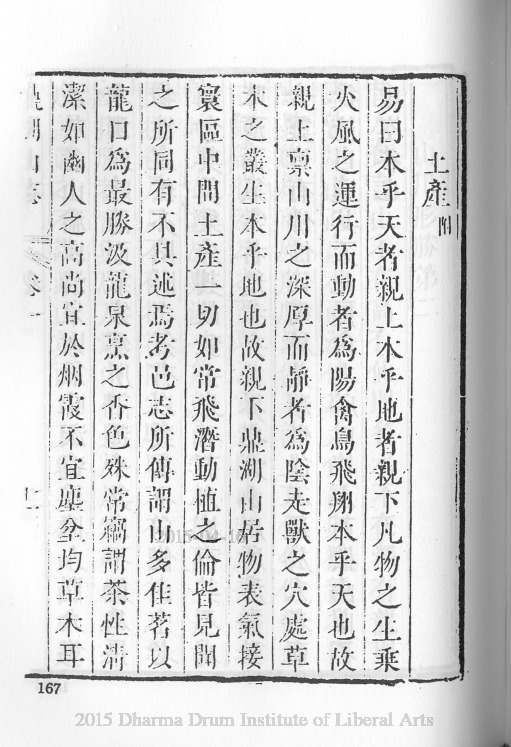 土產附
易曰本乎天者親上本乎地者親下凡物之生乘
火風之運行而動者為陽禽鳥飛翔本乎天也故
親上禀山川之深厚而靜者為陰走獸之穴處草
木之叢生本乎地也故親下鼎湖山居物表氣接
寰區中間土產一切如常飛潛動植之倫皆見聞
之所同有不具述焉考邑志所傳謂山多佳茗以
龍口為最勝汲龍泉烹之香色殊常竊謂茶性清
潔如幽人之高尚宜於烟霞不宜塵坌均草木耳
鼎湖山志 卷一
167
2015 Dharma Drum Institute of Liberal Arts